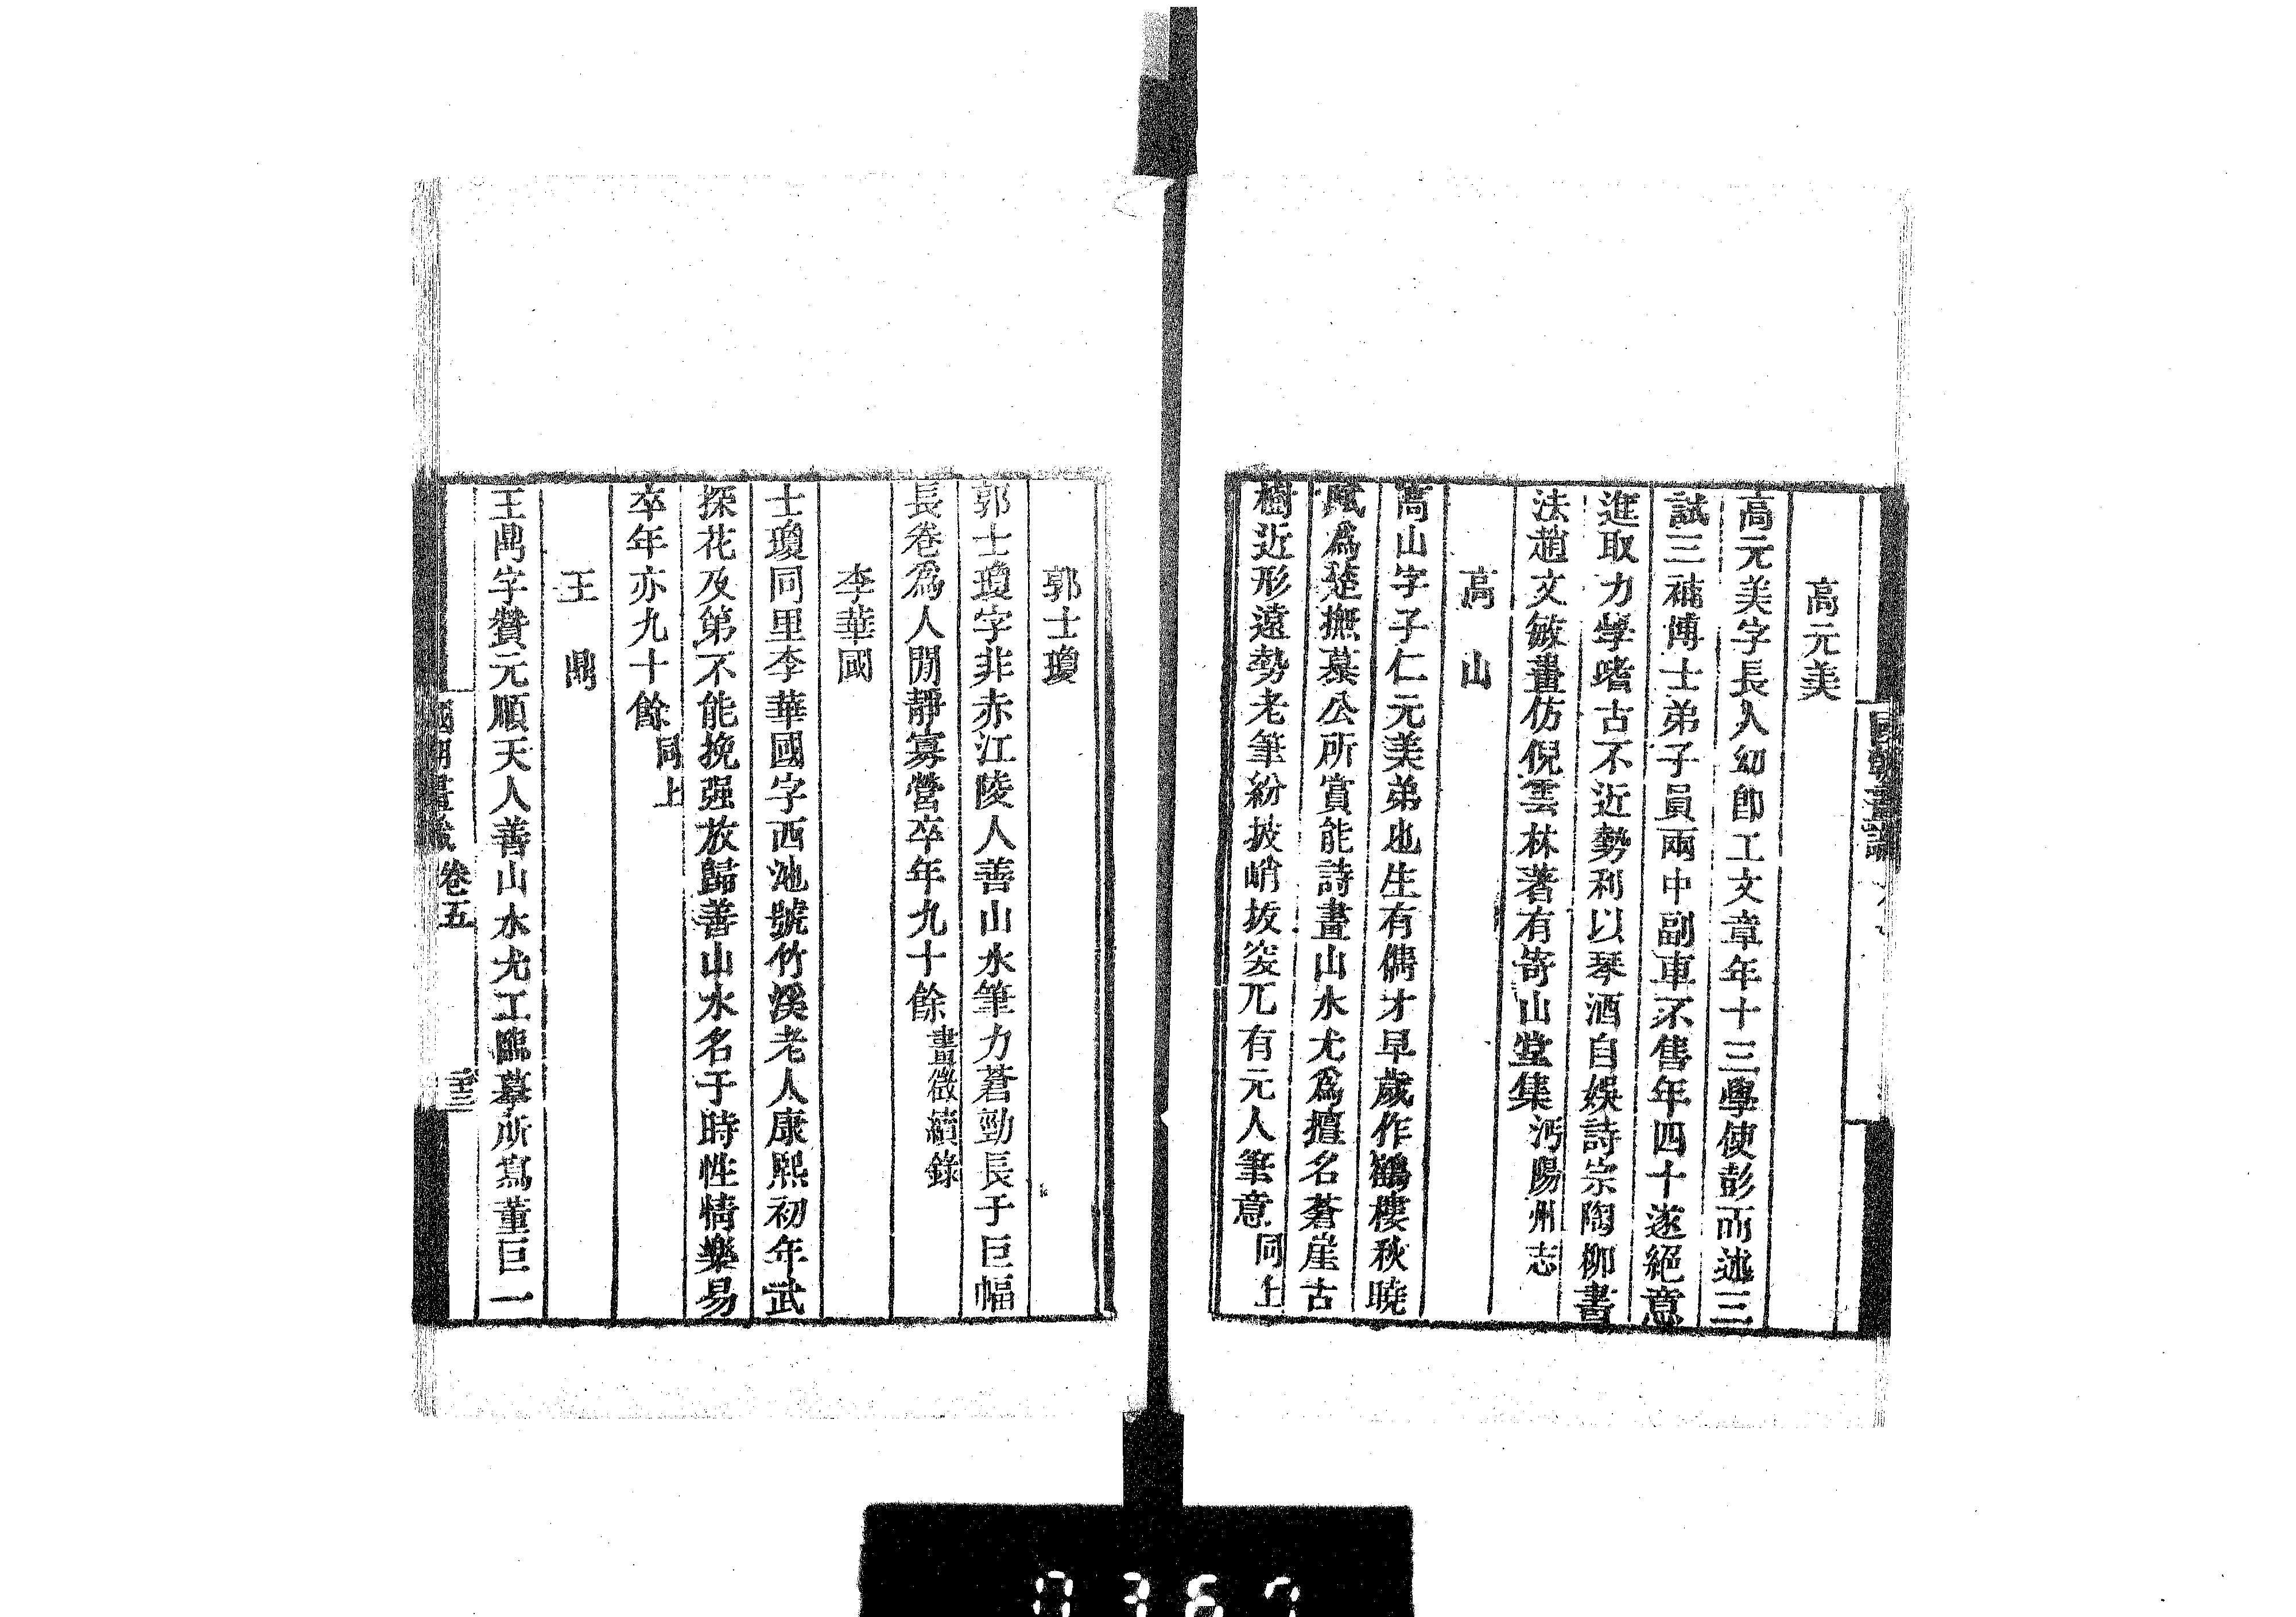 高元美
高元美字長人幼卽工文章年十三學使彭而述三
試三補博士弟子員兩中副車不售年四十遂絕意
進取力學嗜古不近勢利以琴酒自娛詩宗陶柳書
法趙文敏畫仿倪雲林著有笴山堂集沔陽州志
高山
高山字子仁元美弟也生有儁才早歲作鶴樓秋曉
賦爲楚撫慕公所賞能詩畫山水尤爲擅名蒼崖古
樹近形遠勢老筆紛披峭坂突兀有元人筆意同上
郭士瓊
郭士瓊字非赤江陵人善山水筆力蒼勁長于巨幅
長卷爲人閒靜寡營卒年九十餘畫徵續錄
李華國
士瓊同里李華國字西池號竹溪老人康熙初年武
探花及第不能挽强放歸善山水名于時性情樂易
卒年亦九十餘同上
王鼎
王鼎字贊元順天人善山水尤工臨摹所寫董巨一
國朝畫識 卷五